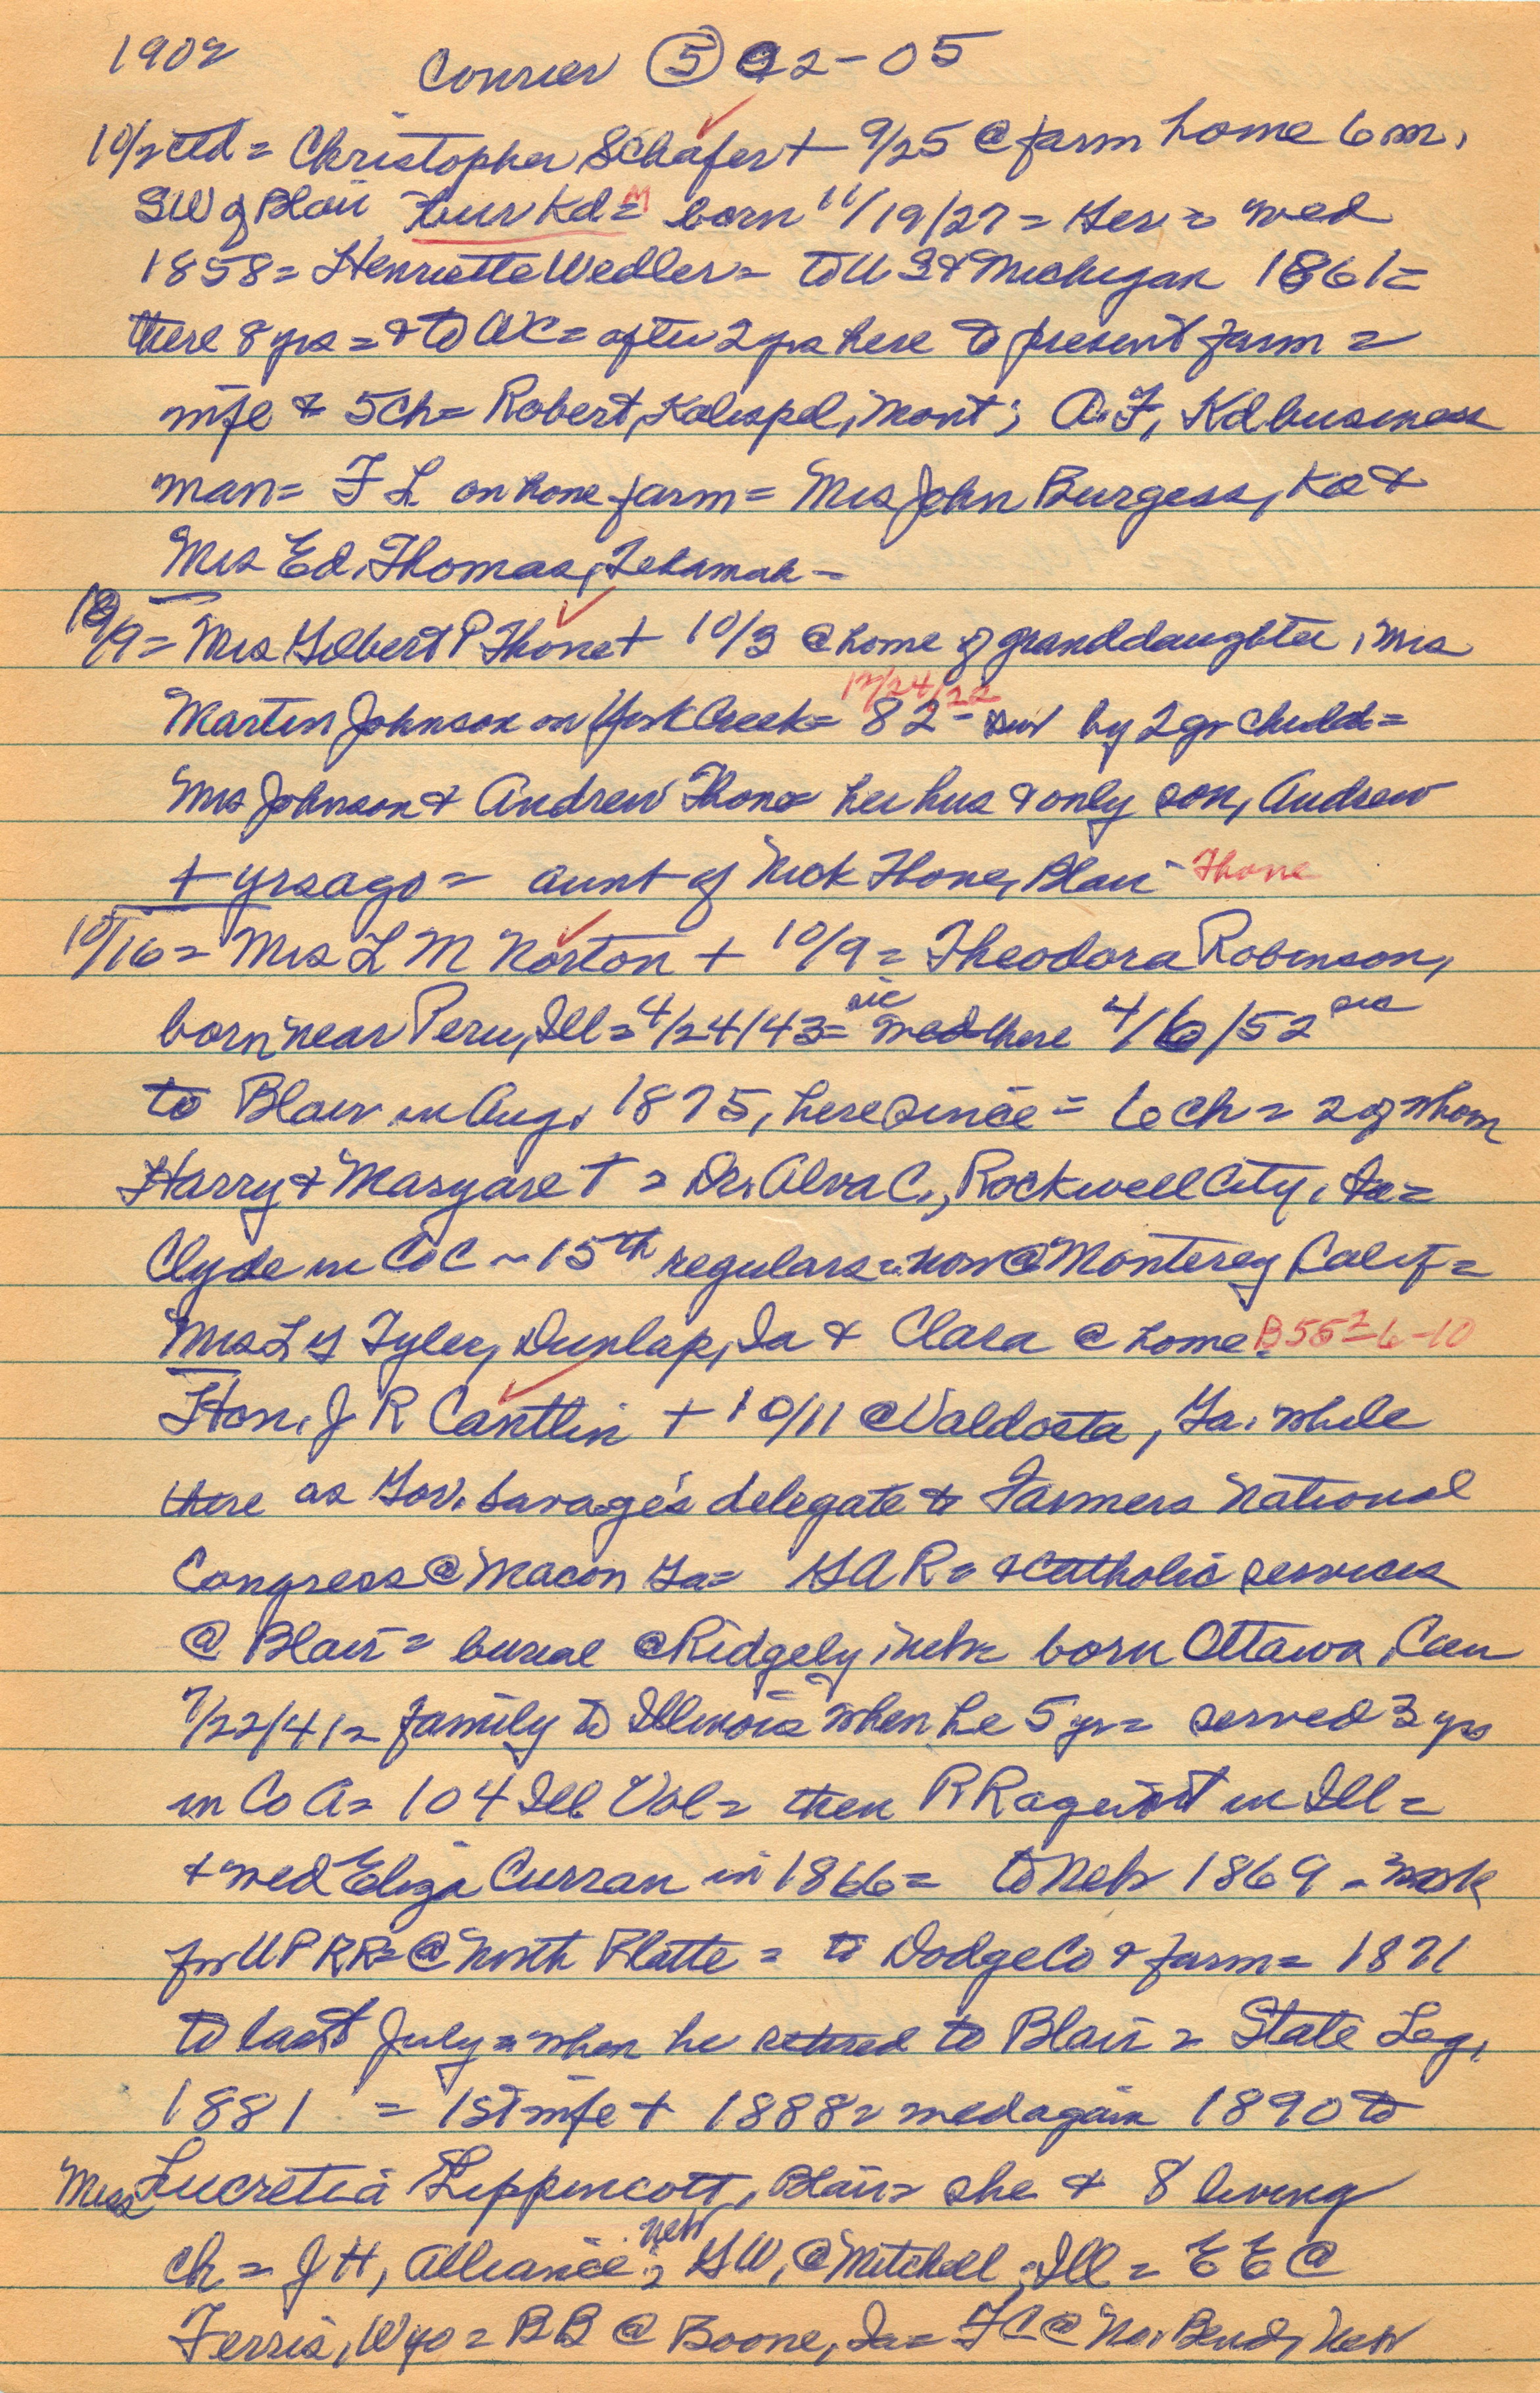 1902 Courier ⑤ 02-05
10/2 ctd = Christopher Schafer + 9/25 @ farm home 6 mi,
SW of Blair bur Kd = M born 11/19/27 = Ger = med
1858 = Henriette Wedler = to US & Michigan 1861 =
there 8 yrs = & to WC = after 2 yrs here to present farm =
wife & 5 ch = Robert, Kalispel, Mont; A.F, Kd business
man = F L on home farm = Mrs John Burgess, Kd &
Mrs Ed. Thomas, Tekamah -
10/9 = Mrs Gilbert P Thone + 10/3 @ home of granddaughter, Mrs
12/24/22
Martin Johnson on York Creek = 82 - sur by 2 gr child =
Mrs Johnson & Andrew Thone = her hus & only son, Andrew
+ yrs ago = aunt of Nick Thone, Blair - Thone
10/16 = Mrs L M Norton + 10/9 = Theodora Robinson,
born near Peru, Ill = 4/24/43 = sic med there 4/6/52 sic
to Blair in Aug. 1875, here since = 6 ch = 2 of whom
Harry & Margaret = Dr. Alva C., Rockwell City, Ia =
Clyde in Co C ~ 15th regulars = now @ Monterey Calif =
Mrs L Y Tyler, Dunlap, Ia & Clara @ home. B 56 = 6-10
Hon. J R Cantlin + 10/11 @ Valdosta, Ga. while
there as Gov. Savage's delegate to Farmers National
Congress @ Macon Ga = GAR = & Catholic services
@ Blair = burial @ Ridgely, Neb = born Ottawa, Can
7/22/41 = family to Illinois when he 5 yr = served 3 yrs
in Co A = 104 Ill Vol = then RR agent in Ill =
& med Eliza Curran in 1866 = to Neb 1869 - work
for UPRR = @ North Platte = to Dodge Co & farm = 1871
to last July = when he retired to Blair = State Leg,
1881 = 1st wife + 1888 = med again 1890 to
Miss Lucretia Lippincott, Blair = she & 8 living
ch = J H, Alliance, Neb; G W, @ Mitchell, Ill = E E @
Ferris, Wyo = B B @ Boone, Ia = F C @ No. Bend, Neb